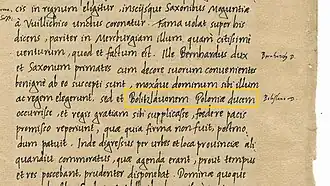 cis in regnum eligitur, inscijsque Saxonibus Maguntiæ
a Vuilliciso unctus coronatur. Fama volat super his
diceris, pariter in Merhurgiam illum quam citissimè
venturum, quod et factum est. Ille Bernhardus dux
et Saxonum primates cum decore suorum convenientes
benignè ab eo suscepti sunt, moxque dominum sibi illum
ac regem elegerunt. sed et Bolitzlavonem Poloniæ ducem
occurrisse, et regis gratiam sibi supplicasse, fœdere pacis
promisso reperiunt, quæ quia firma non fuit, postmo,
dum patuit. Inde digressus per urbes et loca provinciæ ali
quandiu commoratus, quæ agenda erant, prout tempus
et res poscebant, prudenter disponebat. Domina quoque
Bernhardus D.